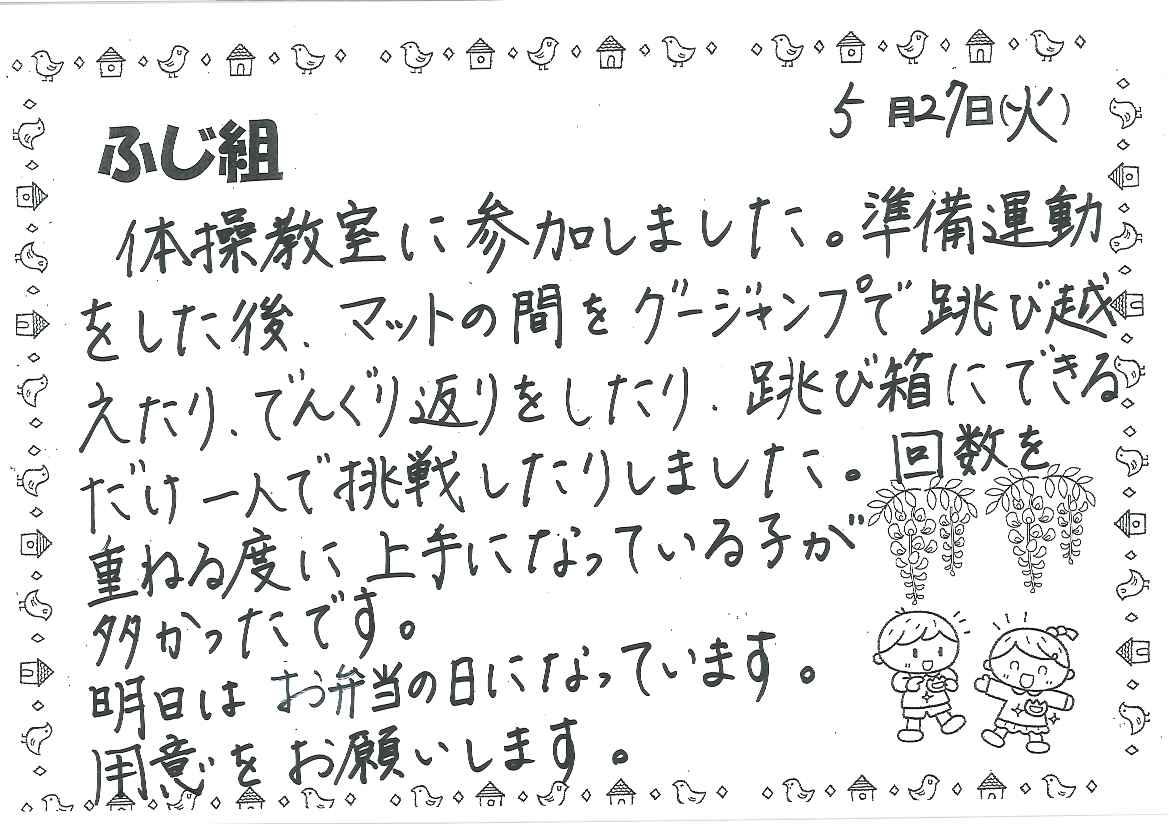 5月27日(火)
ふじ組
体操教室に参加しました。準備運動
をした後、マットの間をグージャンプで跳び越
えたり、でんぐり返りをしたり、跳び箱にできる
だけ一人で挑戦したりしました。回数を
重ねる度に上手になっている子が
多かったです。
明日はお弁当の日になっています。
用意をお願いします。